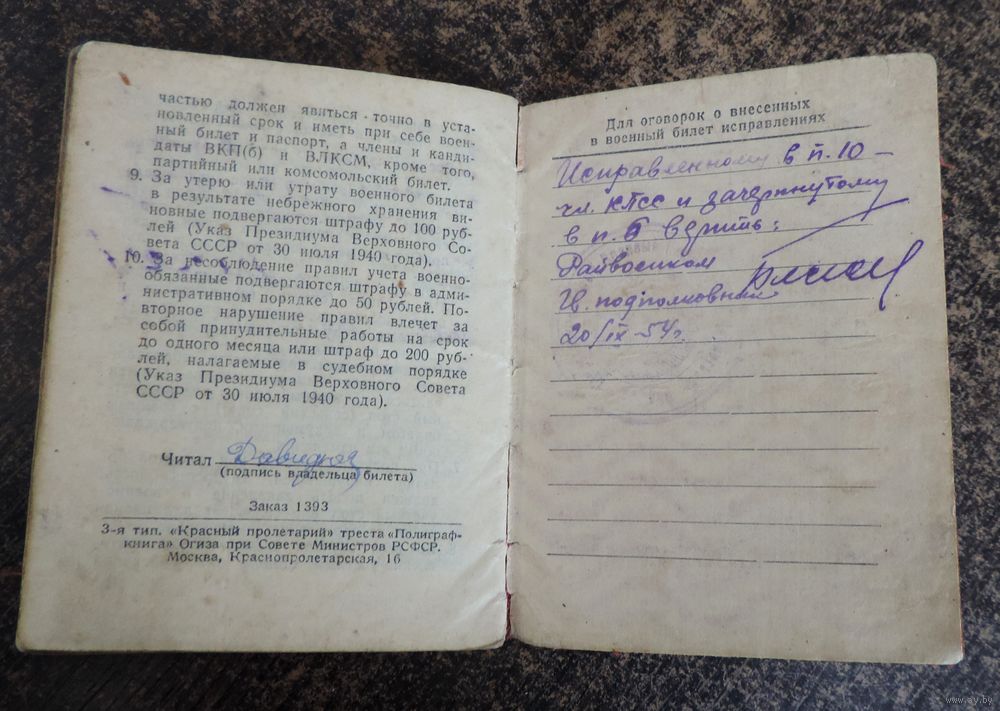 частью должен явиться точно в уста-
новленный срок и иметь при себе воен-
ный билет и паспорт, а члены и канди-
даты ВКП(б) и ВЛКСМ, кроме того,
партийный или комсомольский билет.
9. За утерю или утрату военного билета
в результате небрежного хранения ви-
новные подвергаются штрафу до 100 руб-
лей (Указ Президиума Верховного Со-
вета СССР от 30 июля 1940 года).
10. За несоблюдение правил учета военно-
обязанные подвергаются штрафу в адми-
нистративном порядке до 50 рублей. По-
вторное нарушение правил влечет за
собой принудительные работы на срок
до одного месяца или штраф до 200 руб-
лей, налагаемые в судебном порядке
(Указ Президиума Верховного Совета
СССР от 30 июля 1940 года).
Читал
(подпись владельца билета)
Заказ 1393
3-я тип. «Красный пролетарий» треста «Полиграф-
книга» Огиза при Совете Министров РСФСР.
Москва, Краснопролетарская, 16
Для оговорок о внесенных
в военный билет исправлениях
Исправленному в п. 10 —
чл. КПСС и зачеркнутому
в п. 6 верить:
Райвоенком
Гв. подполковник
20/IX-54г.
www.ay.by